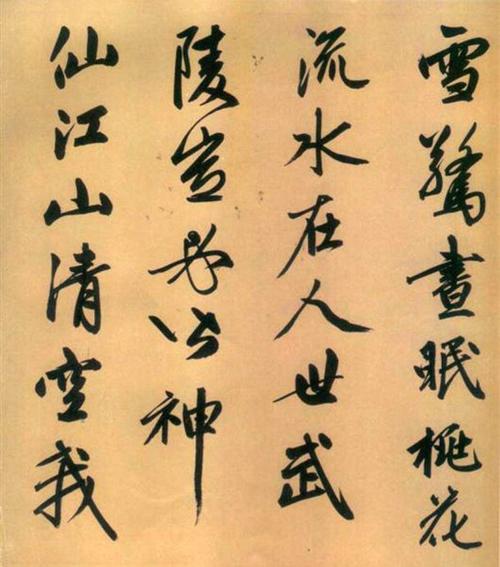 雪驚晝眠桃花
流水在人世武
陵豈必皆神
仙江山清空我